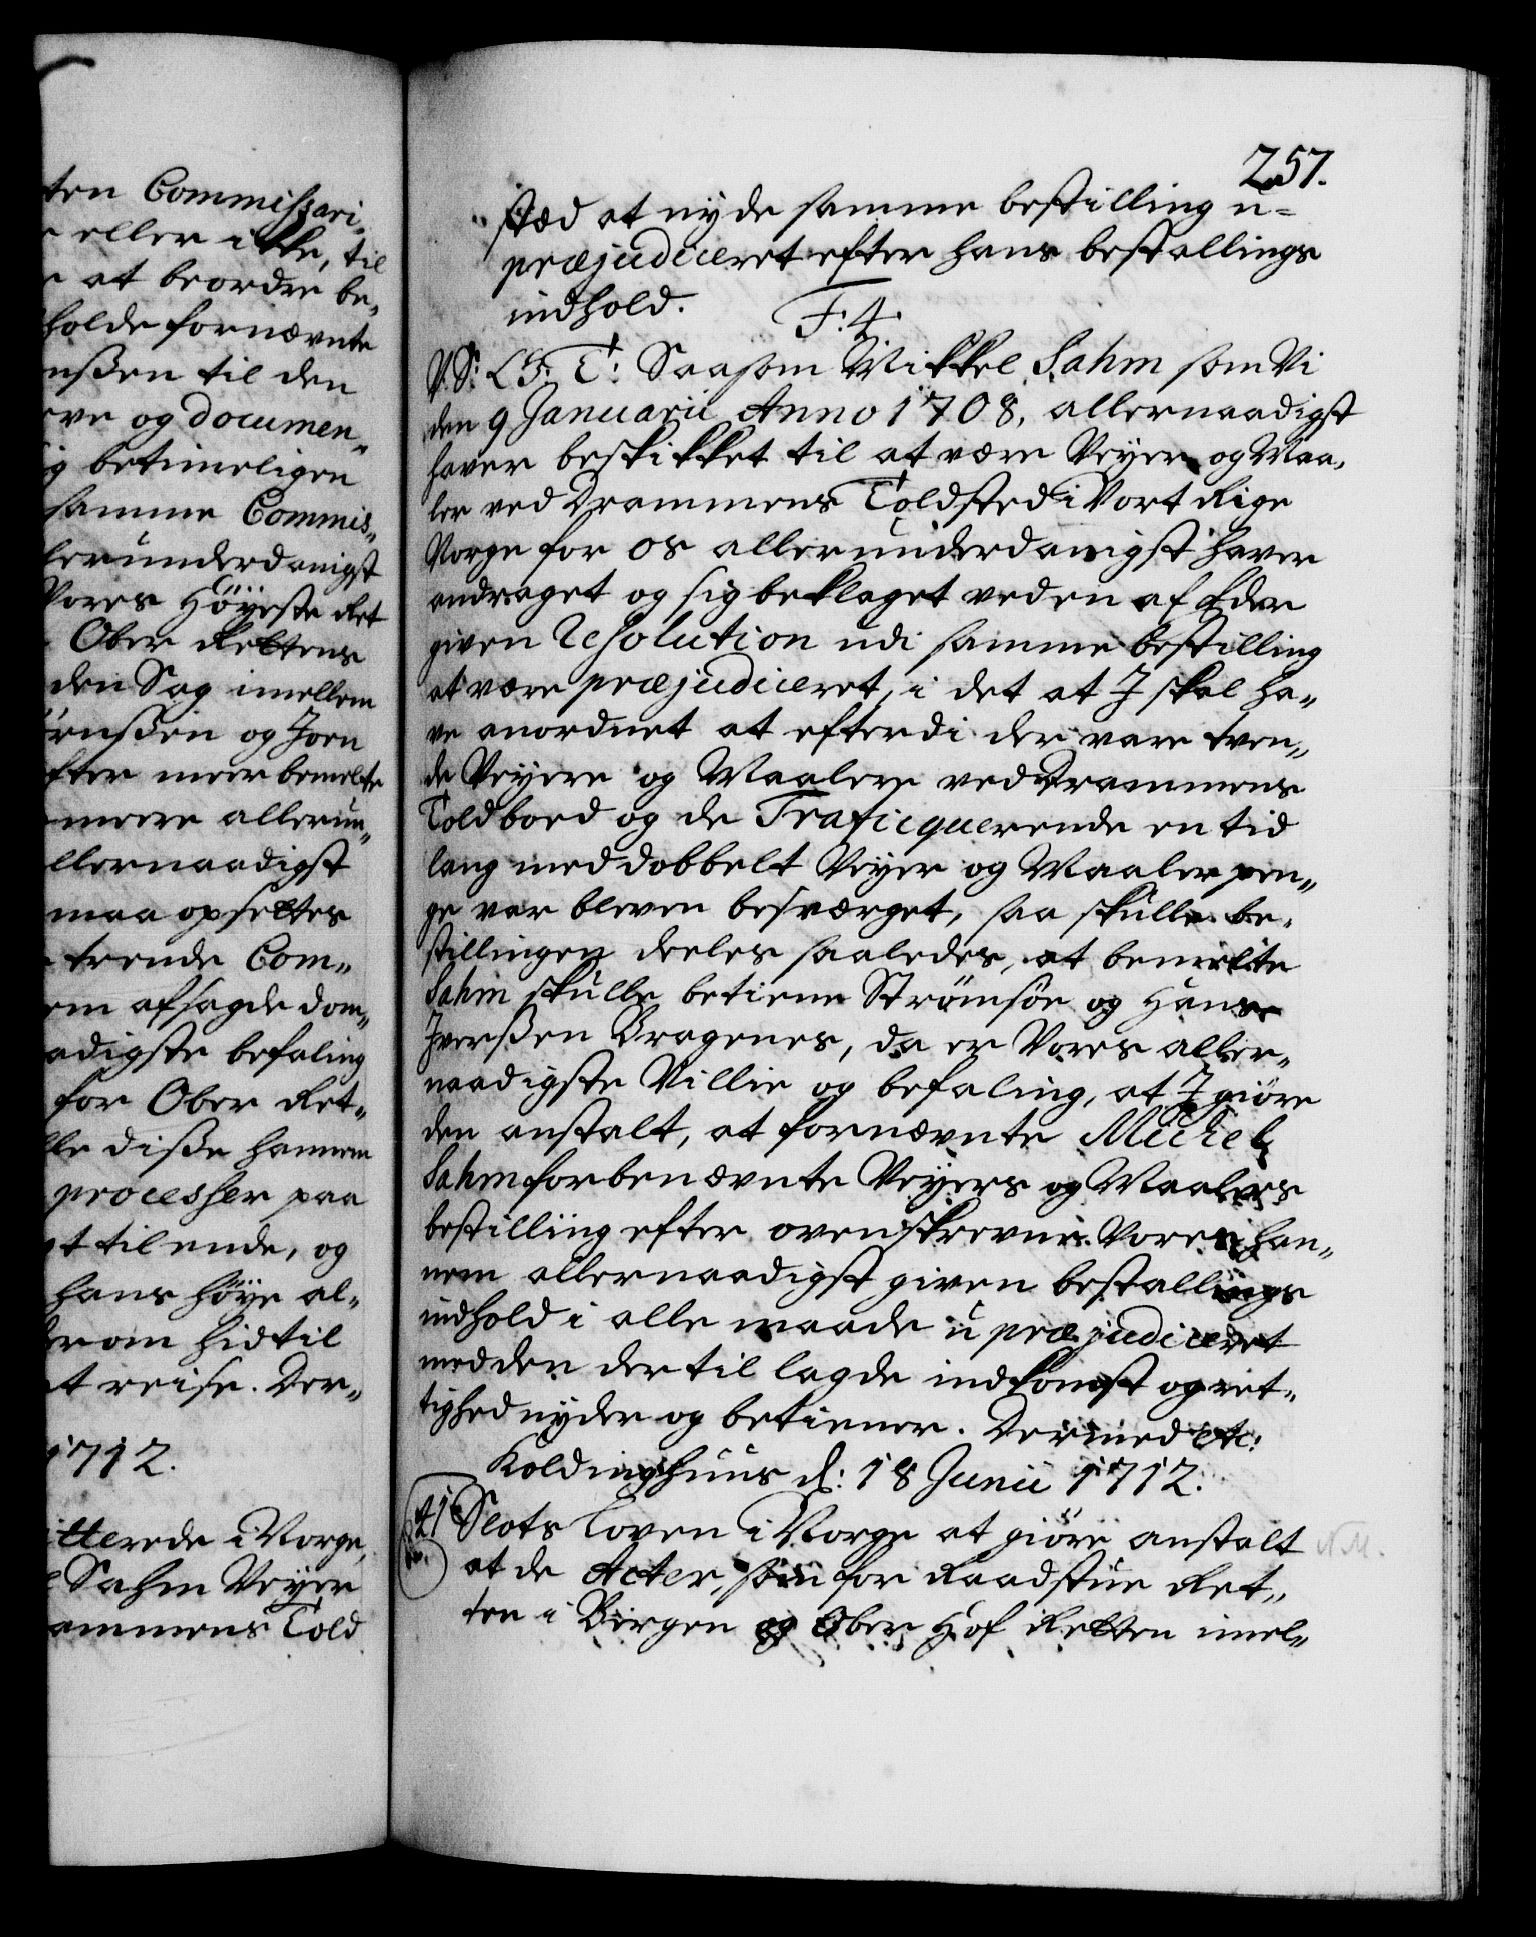 ten Commissari-
eller ikke, til
at beordre be-
holde fornævnte
nßen til den
ve og documen-
betimeligen
samme Commis-
lerunderdanigst
Vores Höyeste Ret
Ober Rettens
den Sag imellem
ørnßen og Joen
fter meer bemelte
meere allerun-
llernaadigst
maa opsettes
trende Com-
em afsagde dom-
adigste befaling
for Ober Ret-
lle diße hannem
processer paa
gt til ende, og
hans höye al-
erom hidtil
at reise. Der-
1712.
itterede i Norge,
Sahm Veyer
rammens Told
257.
stæd at nyde samme bestilling u-
præjudiceret efter hans bestallings
indhold. F. 4.
V. S: C F. T: Saasom Mikkel Sahm som Vi
den 9 Januarii Anno 1708, allernaadigst
haver beskikket til at være Veyer og Maa-
ler ved Drammens Toldsted i Vort Rige
Norge for os allerunderdanigst haver
andraget og sig beklaget ved en af Eder
given Resolution udi samme bestilling
at være præjudiceret, i det at I skal ha-
ve anordnet at efterdi der vare tven-
de Veyere og Maalere ved Drammens
Toldboed og de Traficquerende en tid
lang med dobbelt Veyer og Maaler pen-
ge var bleven besværget, saa skulle be-
stillingen deeles saaledes, at bemelte
Sahm skulle betiene Strømsöe og Hans
Iverßen Bragenes, da er Vores aller-
naadigste Villie og befaling, at I giöre
den anstalt, at fornævnte Michel
Sahm forbenævnte Veyers og Maalers
bestilling efter ovenskrevne Vores han-
nem allernaadigst given bestallings
indhold i alle maade u præjudiceret
med den dertil lagde indkomst og ret-
tighed nyder og betiener. Dermed etc:
Koldinghuus d: 18 Junii 1712.
41 Slots Loven i Norge at giöre anstalt
at de Acter, som for Raadstue Ret-
ten i Bergen og Ober Hof Retten imel-